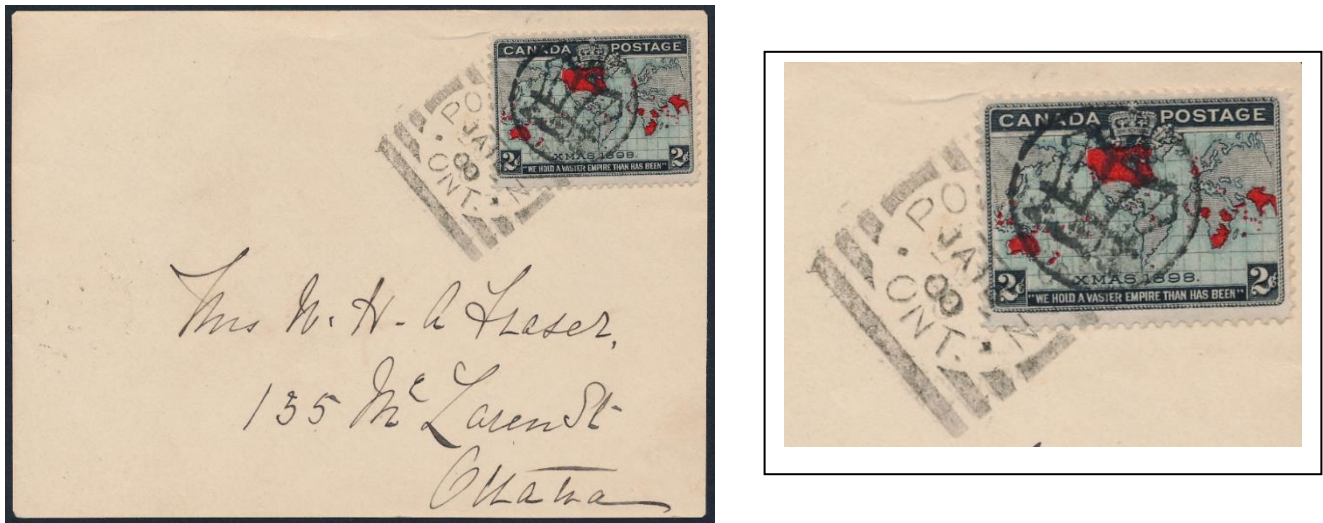 CANADA POSTAGE
XMAS 1898.
2¢ 2¢
"WE HOLD A VASTER EMPIRE THAN HAS BEEN"
ONT.
Mrs W. H. A Fraser,
135 Mc Laren St
Ottawa
CANADA POSTAGE
XMAS 1898.
2¢ 2¢
"WE HOLD A VASTER EMPIRE THAN HAS BEEN"
ONT.